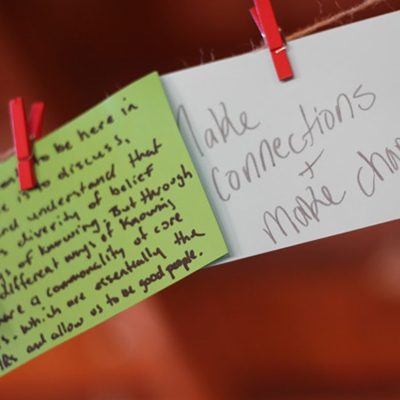 to be here in
is to discuss,
and understand that
diversity of belief
of knowing. But through
different ways of knowing
here a commonality of core
which are essentially the
and allow us to be good people.
Make
connections
+
make